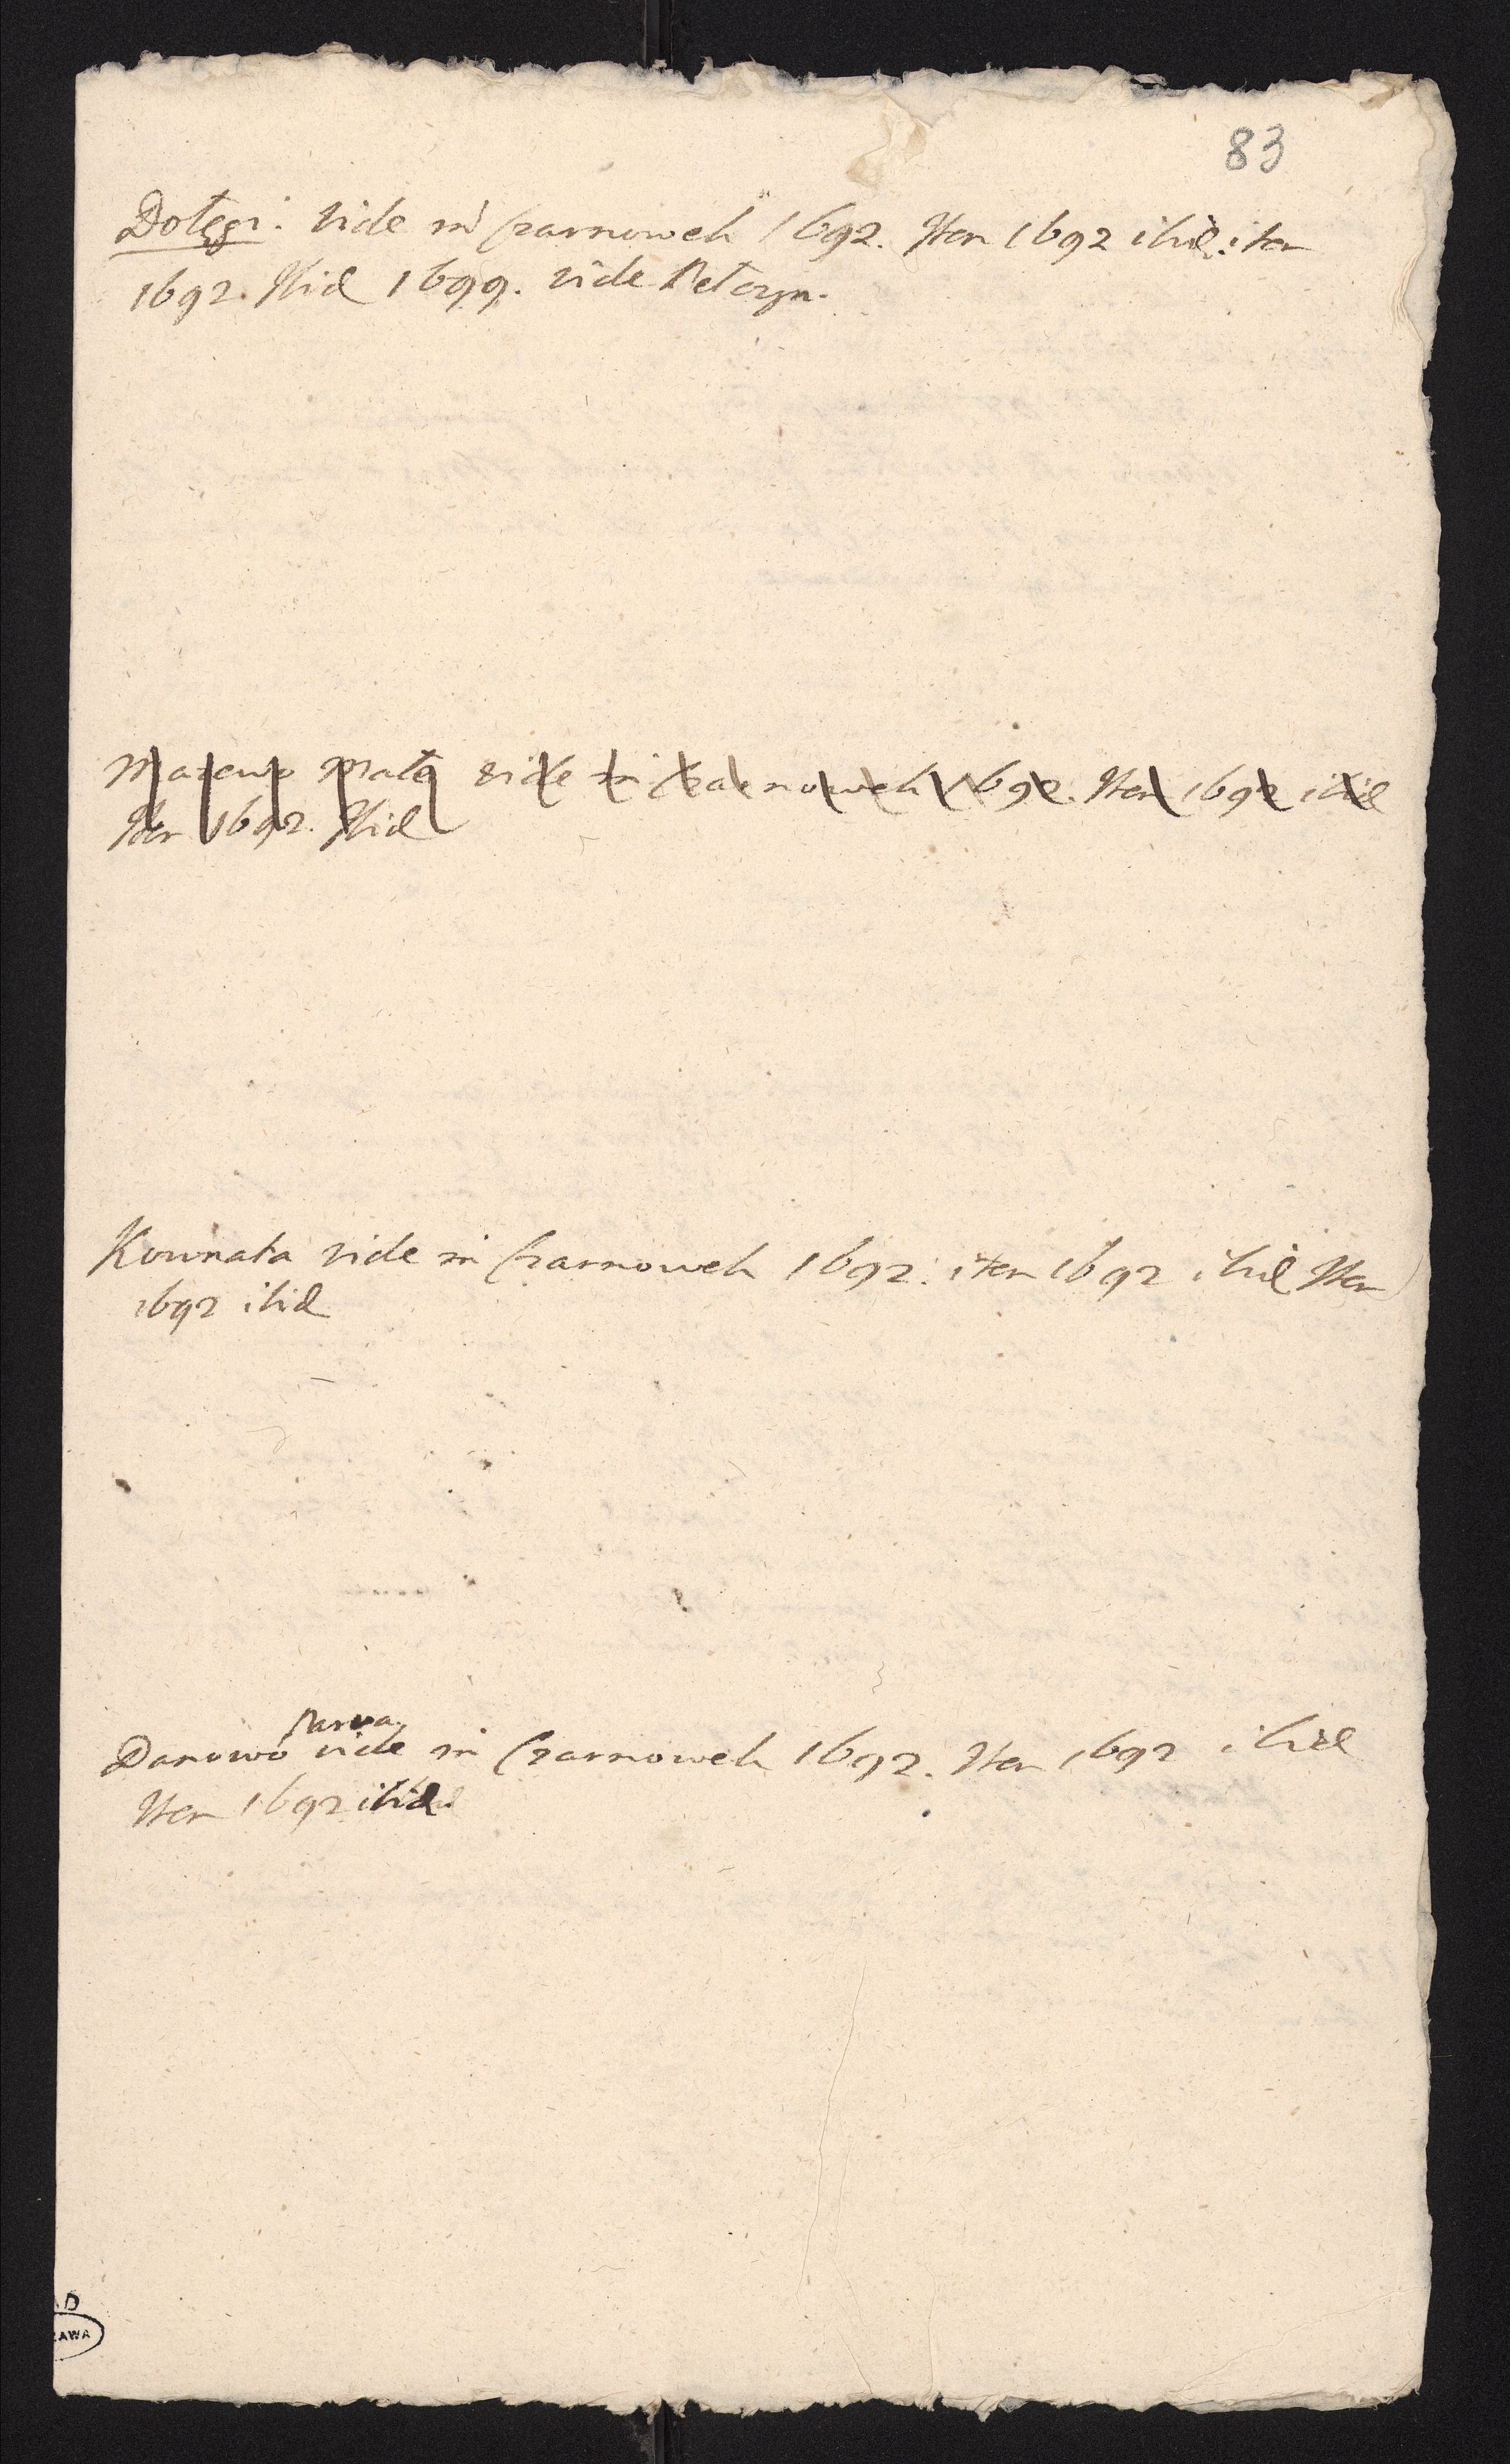 83
Dołęgi. Vide in Czarnoweh 1692. Item 1692 ibid. item
1692. Ibid 1699. vide Pełczyn.
Mazewo Małe vide in Czarnoweh 1692. Item 1692 ibid
Item 1692. Ibid
Kownata vide in Czarnoweh 1692. item 1692 ibid Item
1692 ibid
parva
Danowo vide in Czarnoweh 1692. Item 1692 ibid
Item 1692 ibid.
AD
ZAWA